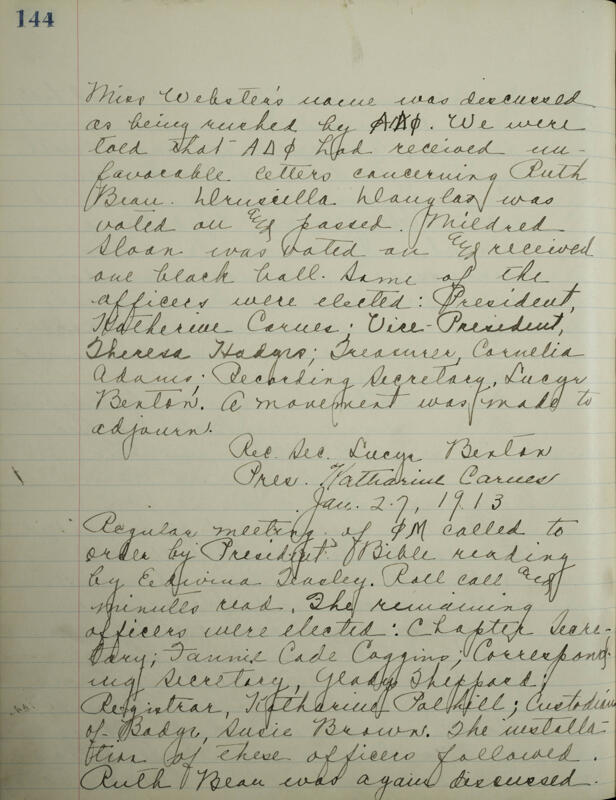 144
Miss Webster's name was discussed
as being rushed by ΑΔΦ. We were
told that ΑΔΦ had received un-
favorable letters concerning Ruth
Beau. Druscilla Douglas was
voted on and passed. Mildred
Sloan was voted on and received
one black ball. Some of the
officers were elected: President,
Katherine Carnes; Vice-President,
Theresa Hodges; Treasurer, Cornelia
Adams; Recording Secretary, Lucyr
Benton. A movement was made to
adjourn.
Rec. Sec. Lucyr Benton
Pres. Katharine Carnes
Jan. 27, 1913
Regular meeting of ΦΜ called to
order by President. Bible reading
by Edwina Teasley. Roll call and
minutes read. The remaining
officers were elected: Chapter Secre-
tary; Fannie Cade Coggins; Correspond-
ing Secretary, Gladys Sheppard;
Registrar, Katharine Polhill; Custodian
of Badge, Susie Brown. The installa-
tion of these officers followed.
Ruth Beau was again discussed.